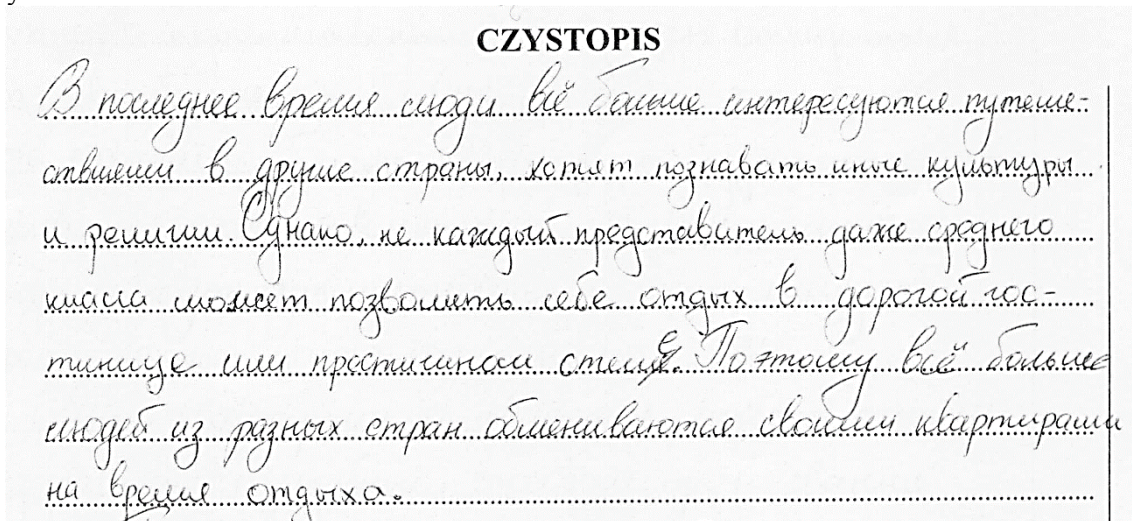 CZYSTOPIS
В последнее время люди всё больше интересуются путеше-
ствиями в другие страны, хотят познавать иные культуры
и религии. Однако, не каждый представитель даже среднего
класса может позволить себе отдых в дорогой гос-
тинице или престижном отеле. Поэтому всё больше
людей из разных стран обмениваются своими квартирами
на время отдыха.